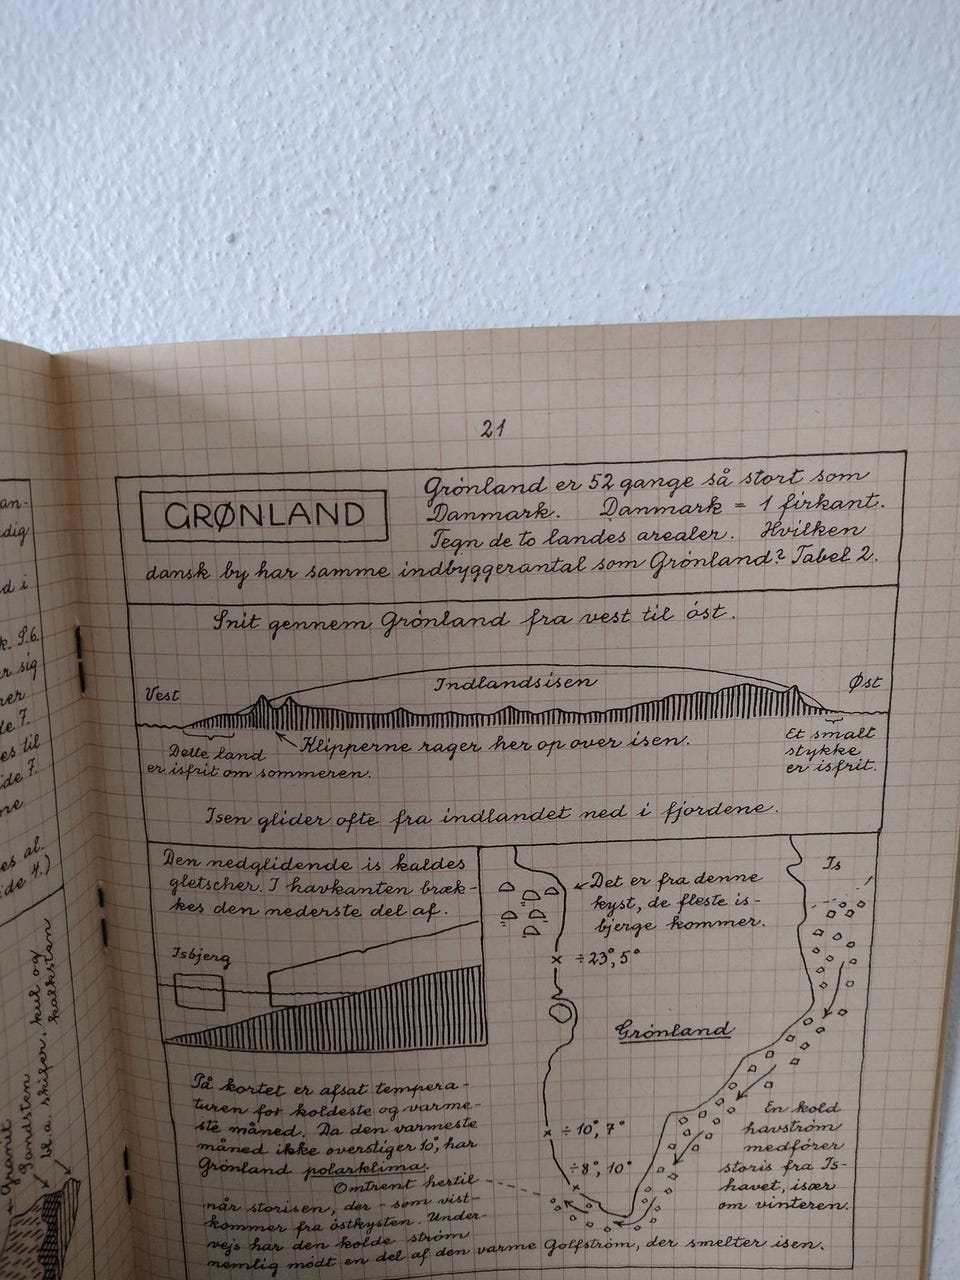 an-
dig
d i
k. S.6.
er sig
rer
de 7.
es til
ide 7.
me
es al.
ide 4.)
Granit
Sandsten
bl.a. skifer, kul og
kalksten
21
GRØNLAND
Grønland er 52 gange så stort som
Danmark. Danmark = 1 firkant.
Tegn de to landes arealer. Hvilken
dansk by har samme indbyggerantal som Grønland? Tabel 2.
Snit gennem Grønland fra vest til øst.
Vest
Indlandsisen
Øst
Dette land
er isfrit om sommeren.
Klipperne rager her op over isen.
Et smalt
stykke
er isfrit.
Isen glider ofte fra indlandet ned i fjordene.
Den nedglidende is kaldes
gletscher. I havkanten bræk-
kes den nederste del af.
Isbjerg
På kortet er afsat tempera-
turen for koldeste og varme-
ste måned. Da den varmeste
måned ikke overstiger 10°, har
Grønland polarklima.
Omtrent hertil
når storisen, der - som vist -
kommer fra østkysten. Under-
vejs har den kolde strøm
nemlig mødt en del af den varme Golfstrøm, der smelter isen.
Det er fra denne
kyst, de fleste is-
bjerge kommer.
÷23°, 5°
Grønland
÷10°, 7°
÷8°, 10°
Is
En kold
havstrøm
medfører
storis fra Is-
havet, især
om vinteren.